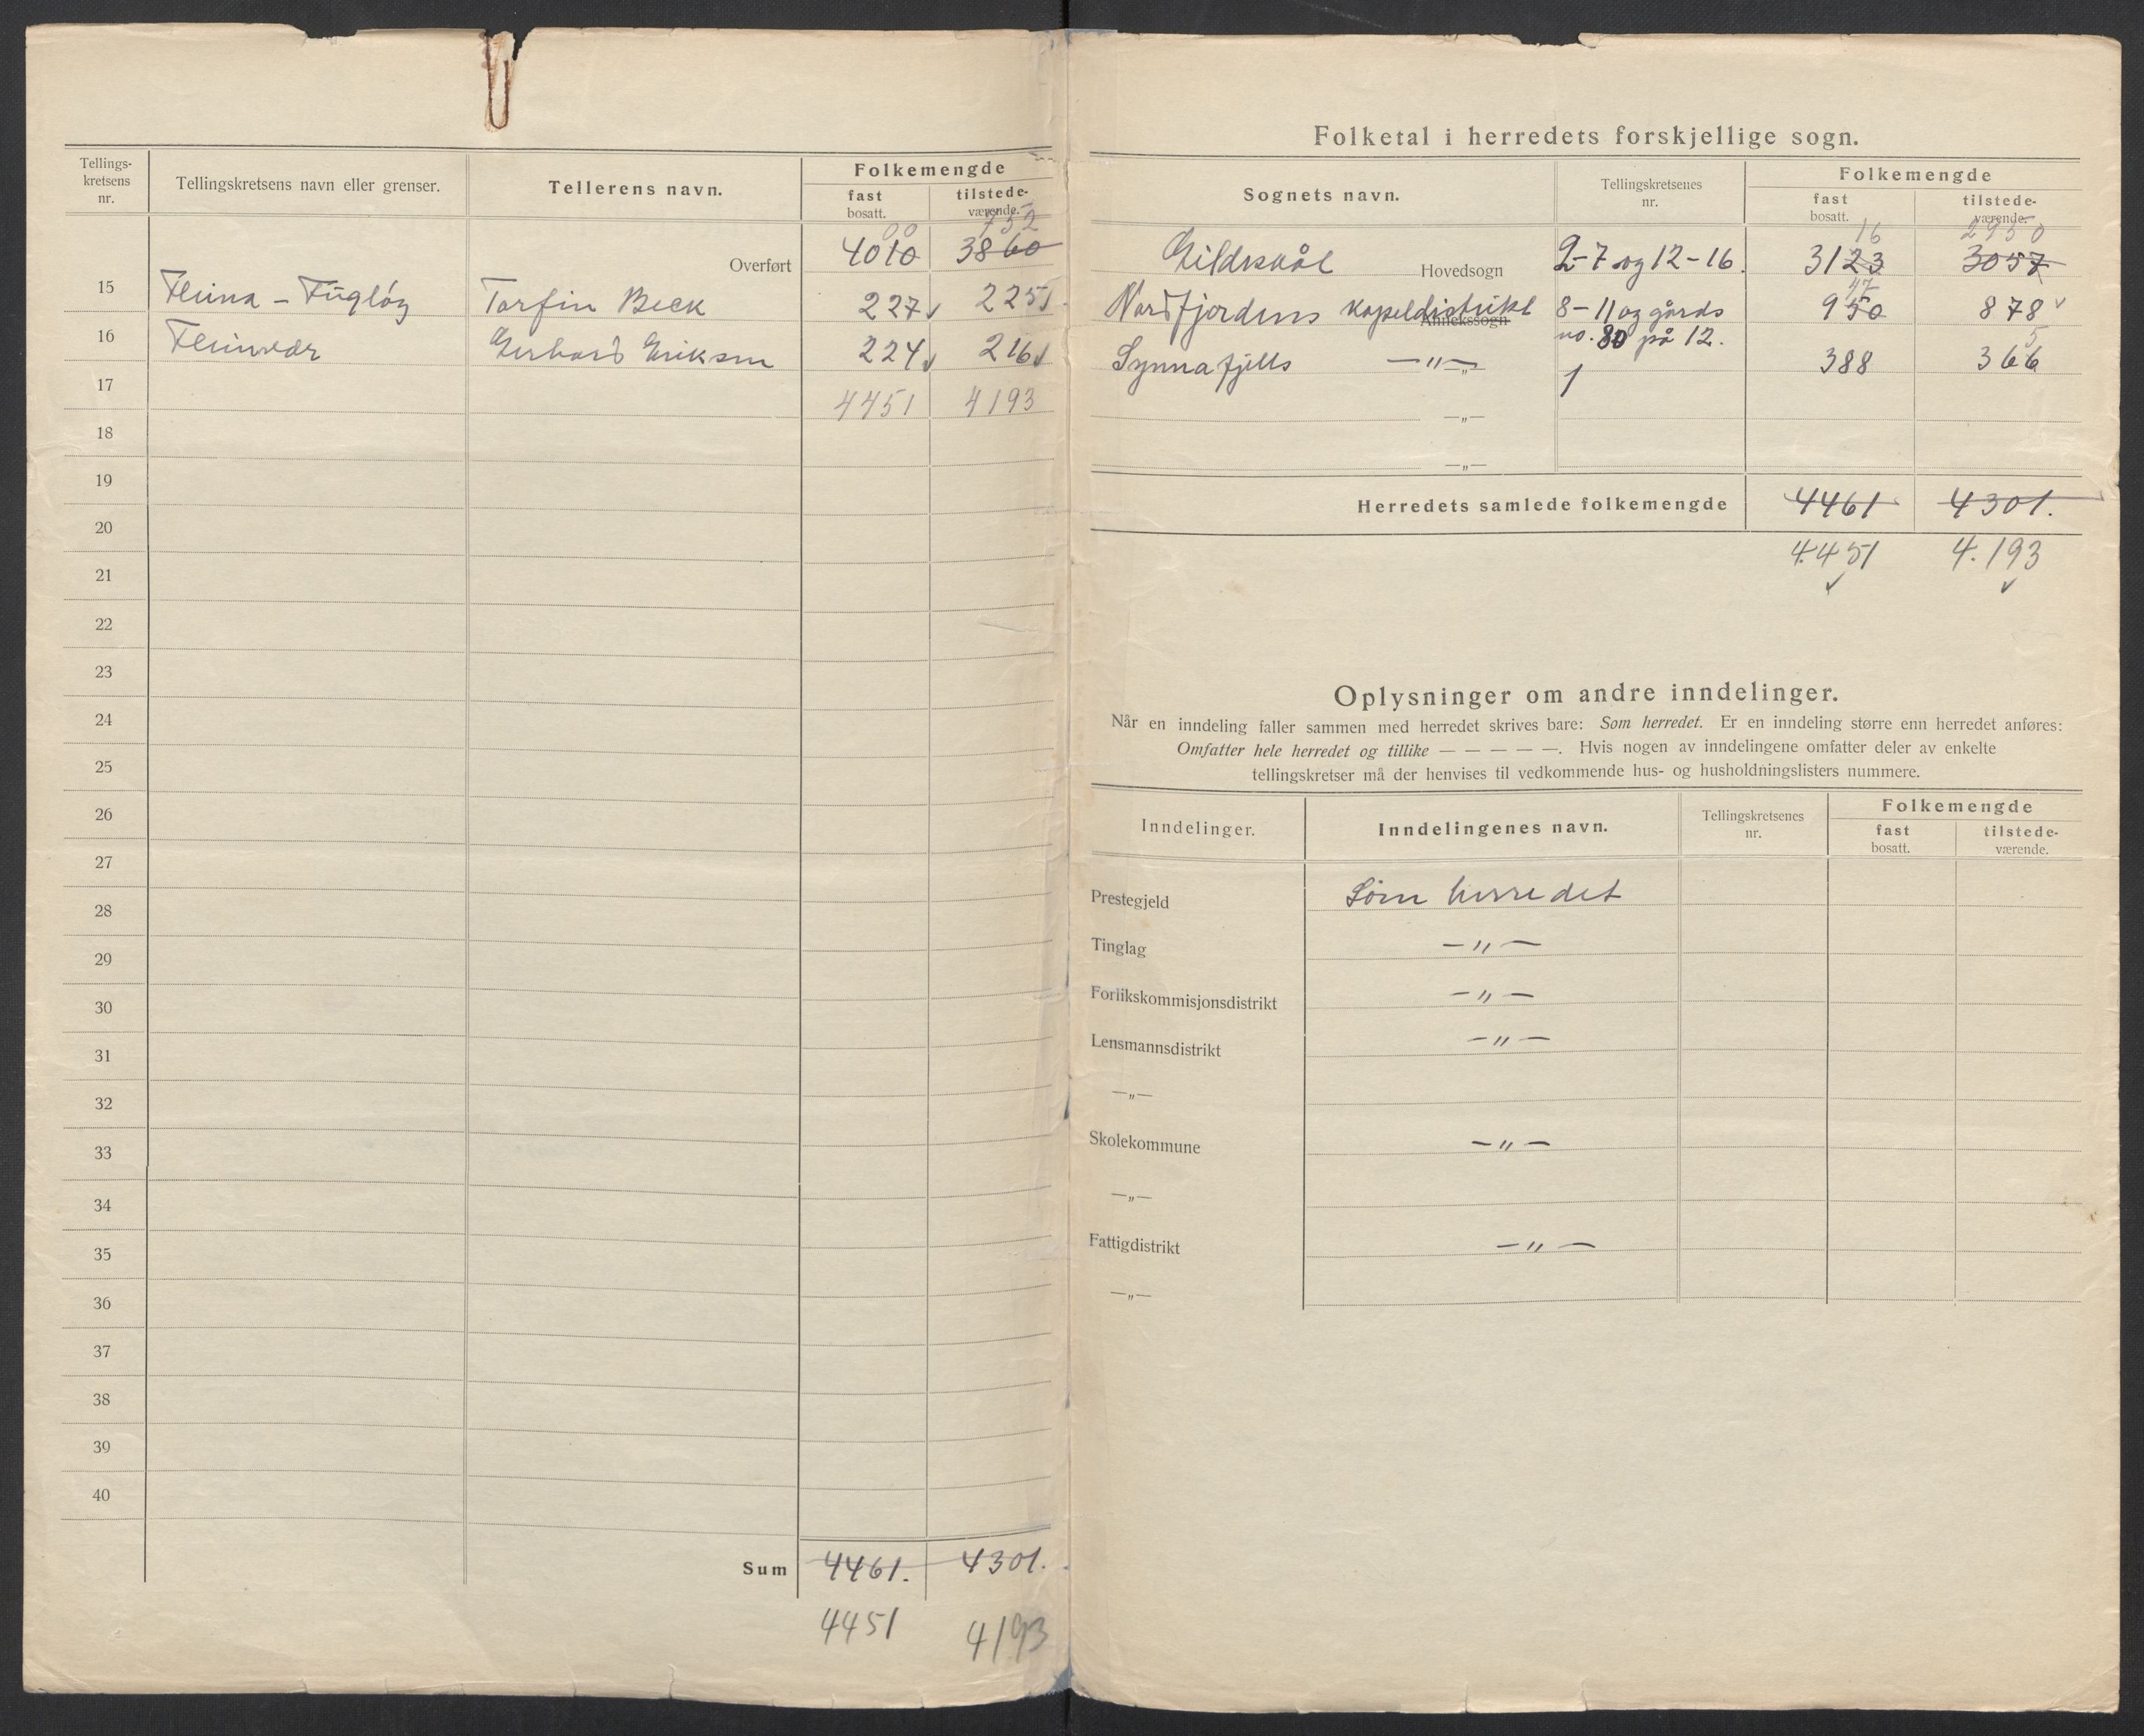 Tellings-
kretsens
nr.
Tellingskretsens navn eller grenser.
Tellerens navn.
Folkemengde
fast
bosatt.
tilstede-
værende.
00 752
Overført 4010 3860
15 Fleina - Fugløy Torfin Beck 227 225
16 Fleinvær Gerhard Eriksen 224 216
17 4451 4193
18
19
20
21
22
23
24
25
26
27
28
29
30
31
32
33
34
35
36
37
38
39
40
Sum 4461. 4301.
4451 4193
Folketal i herredets forskjellige sogn.
Sognets navn.
Tellingskretsenes
nr.
Folkemengde
fast
bosatt.
tilstede-
værende.
16 2950
Gildeskål Hovedsogn 2-7 og 12-16. 3123 3057
47
Nordfjordens kapeldistrikt Annekssogn 8-11 og gårds 950 878
no. 80 på 12.
5
Synnafjells —„— —„— 1 388 366
—„—
—„—
Herredets samlede folkemengde 4461 4301.
4.451 4.193
Oplysninger om andre inndelinger.
Når en inndeling faller sammen med herredet skrives bare: Som herredet. Er en inndeling større enn herredet anføres:
Omfatter hele herredet og tillike — — — — —. Hvis nogen av inndelingene omfatter deler av enkelte
tellingskretser må der henvises til vedkommende hus- og husholdningslisters nummere.
Inndelinger.
Inndelingenes navn.
Tellingskretsenes
nr.
Folkemengde
fast
bosatt.
tilstede-
værende.
Prestegjeld Som herredet
Tinglag —„—
Forlikskommisjonsdistrikt —„—
Lensmannsdistrikt —„—
—„—
Skolekommune —„—
—„—
Fattigdistrikt —„—
—„—